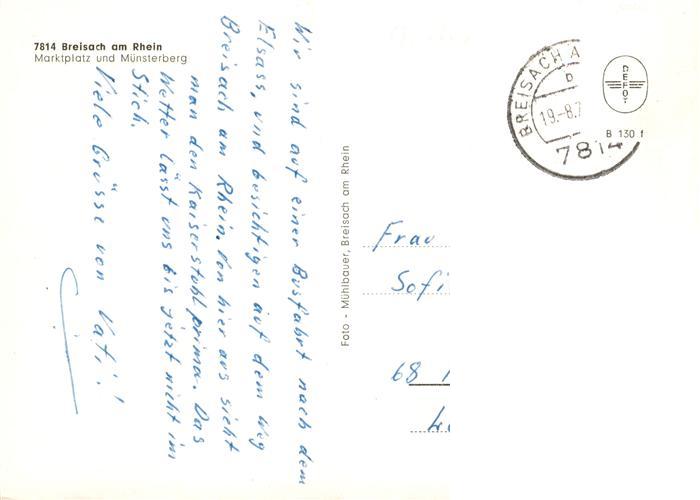 7814 Breisach am Rhein
Marktplatz und Münsterberg
Wir sind auf einer Busfahrt nach dem
Elsass, und besichtigen auf dem Weg
Breisach am Rhein. Von hier aus sieht
man den Kaiserstuhl prima. Das
Wetter lässt uns bis jetzt nicht im
Stich.
Viele Grüsse von Vati!
Foto - Mühlbauer, Breisach am Rhein
BREISACH A
D
19.-8.7
7814
DEFOT
B 130 f
Frau
Sofi
68